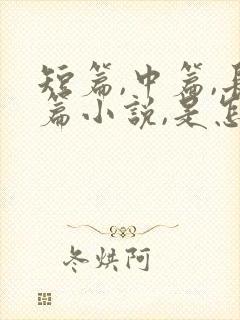 短篇,中篇,長
篇小說,是怎
冬烘阿